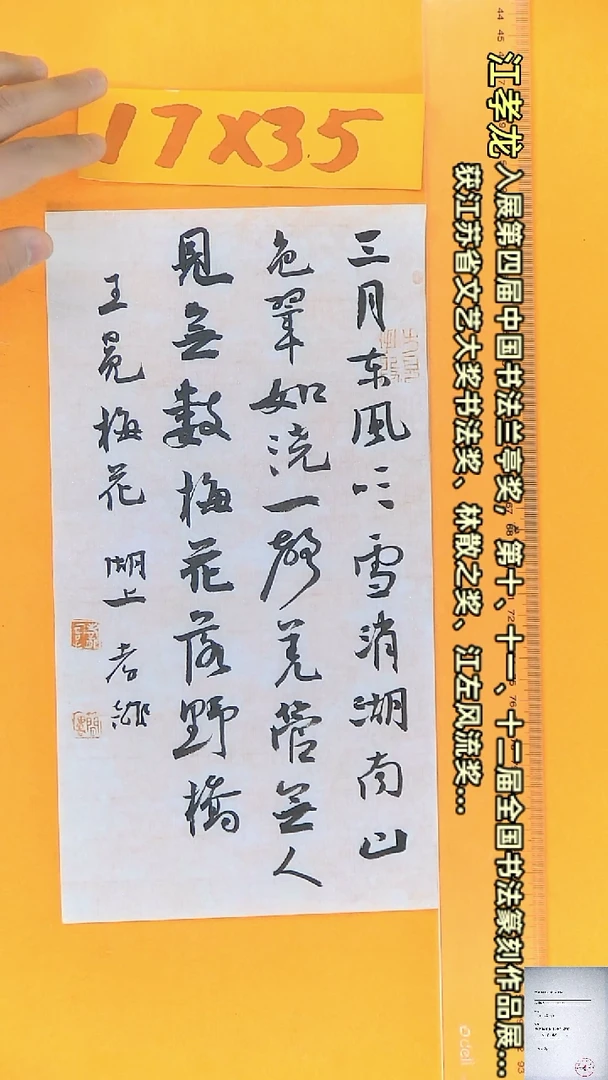 17X35
江孝龙 入展第四届中国书法兰亭奖，第十、十一、十二届全国书法篆刻作品展...
获江苏省文艺大奖书法奖、林散之奖、江左风流奖...
三月东風吹雪消湖南山
色翠如浇一聲羌管無人
見無數梅花落野橋
王冕梅花 湖上 孝龍
deli